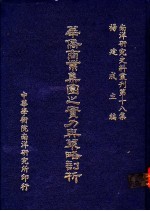 南洋研究史料叢刊第十八集
楊建成主編
華僑商業集團之實力與策略剖析
中華學術院南洋研究所印行